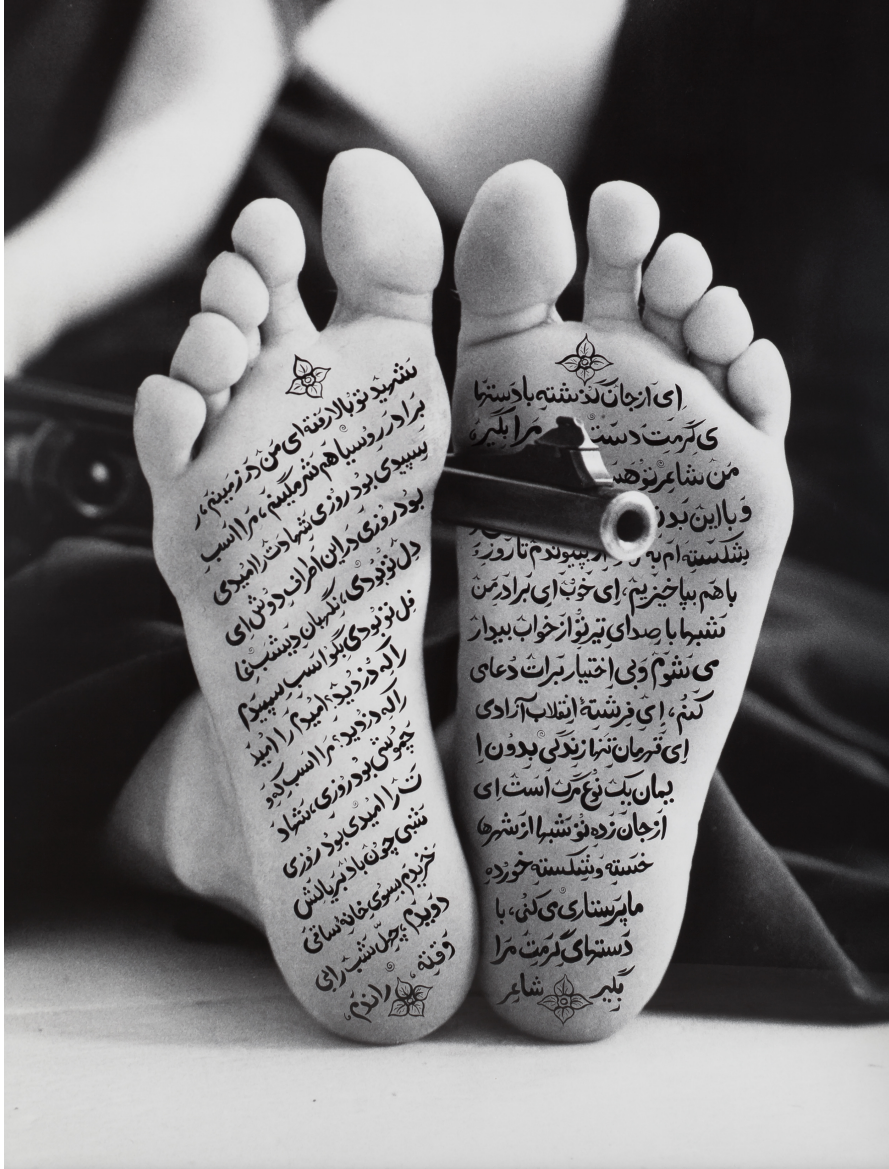 ای از جان گذشته با دستها
ی گرمت دست مرا بگیر،
من شاعر تو
و با این بدن
شکسته ام تا روز
با هم بپاخیزیم، ای خوب ای برادر من
شبها با صدای تیر تو از خواب بیدار
می شوم و بی اختیار برات دعا می
کنم، ای فرشتهٔ انقلاب آزادی
ای قهرمان تنها زندگی بدون ا
یمان یک نوع مرگ است ای
از جان زده تو شبها از شهرها
خسته و شکسته خورده
ما پرستاری می کنی، با
دستهای گرمت مرا
بگیر شاعر
شهید تو بالا رفته ای من در زمینم، ر
برادر روسیاهم شرمگینم، مرا اسب
سپیدی بود روزی شهادت را امیدی
بود روزی در این اطراف دوش ای
دل تو بودی، نگهبان دیشب
فل تو بودی بگو اسب سپیدم
را که دزدید؟ امیدم را امید
را که دزدید؟ مرا اسب
چموشی بود روزی، شهاد
ت را امیدی بود روزی
شبی چون باد بر یالش
خزیدم بسوی خانه ساقی
دویدم، چهل شب را بی
وقفه، راندم،